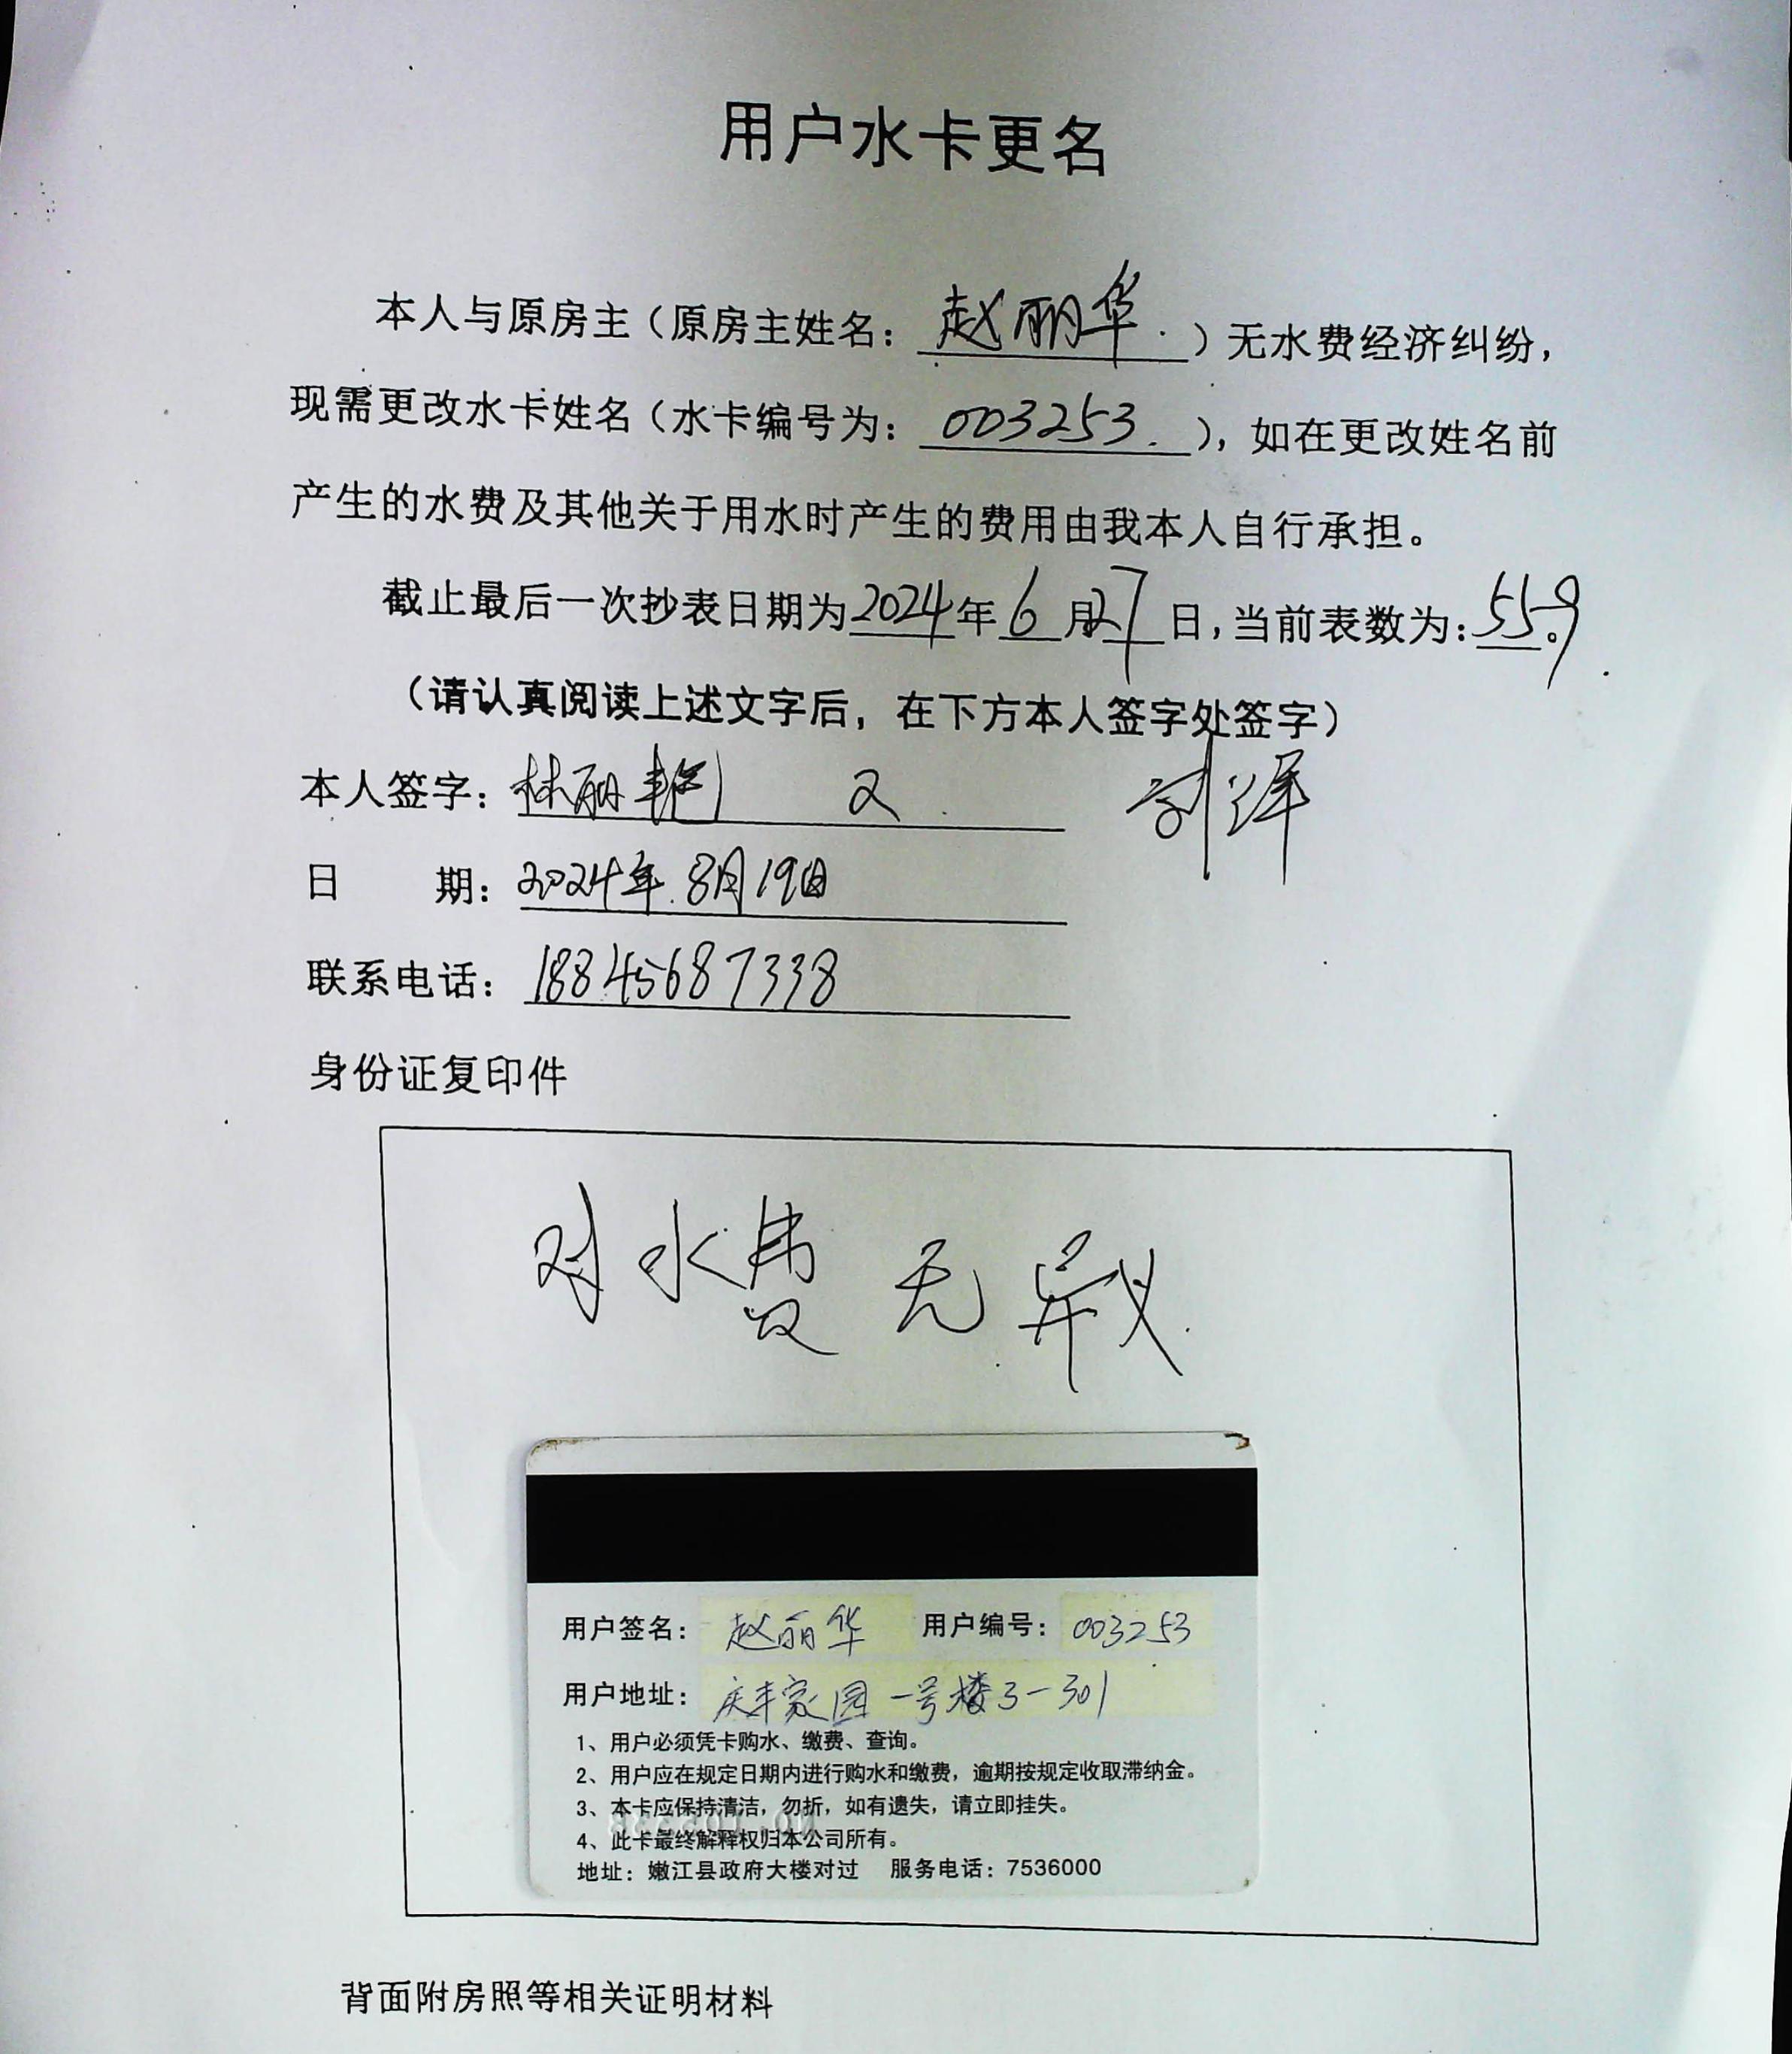 用户水卡更名
本人与原房主（原房主姓名：赵丽华.）无水费经济纠纷，
现需更改水卡姓名（水卡编号为：003253.），如在更改姓名前
产生的水费及其他关于用水时产生的费用由我本人自行承担。
截止最后一次抄表日期为2024年6月27日，当前表数为：559。
（请认真阅读上述文字后，在下方本人签字处签字）
本人签字：林丽艳
日 期：2024年.8月19日
联系电话：18845687338
身份证复印件
对水费无异议.
用户签名：赵丽华 用户编号：003253
用户地址：庆丰家园一号楼3-301
1、用户必须凭卡购水、缴费、查询。
2、用户应在规定日期内进行购水和缴费，逾期按规定收取滞纳金。
3、本卡应保持清洁，勿折，如有遗失，请立即挂失。
4、此卡最终解释权归本公司所有。
地址：嫩江县政府大楼对过 服务电话：7536000
背面附房照等相关证明材料